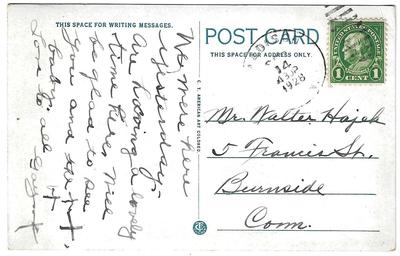 THIS SPACE FOR WRITING MESSAGES.
We were here
yesterday-
Are having a lovely
time here. Will
be glad to see
you and the
baby.
Love to all
C. T. AMERICAN ART COLORED
POST CARD
THIS SPACE FOR ADDRESS ONLY.
14
1928
UNITED STATES POSTAGE
1 CENT 1
Mr. Walter Hajek
5 Francis St.
Burnside
Conn.